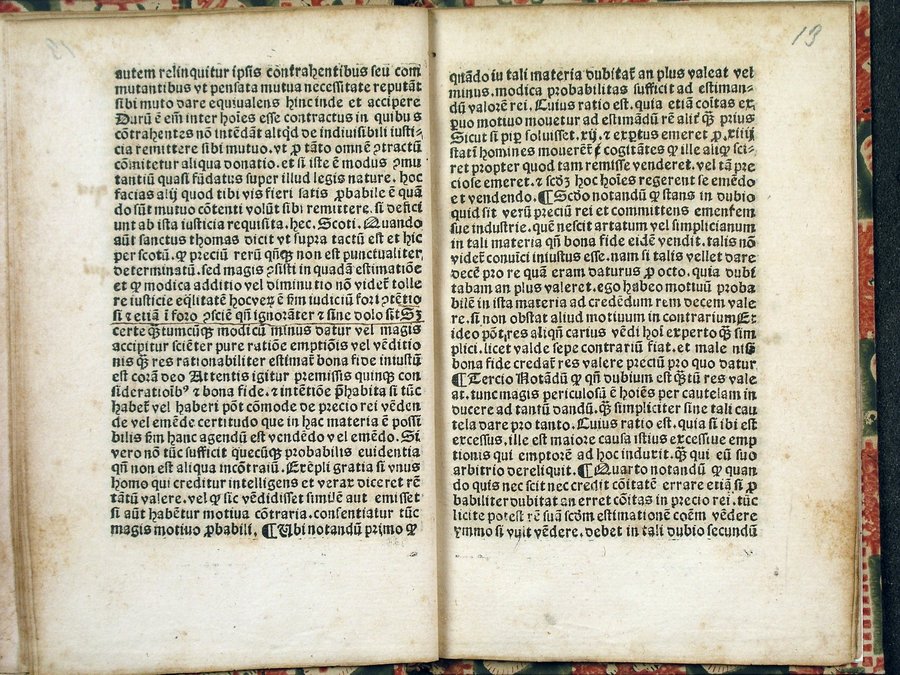 autem relinquitur ipsis contrahentibus seu com
mutantibus vt pensata mutua necessitate reputāt
sibi muto dare equiualens hinc inde et accipere
Durū ē em̄ inter hoīes esse contractus in quibus
cōtrahentes nō intēdāt altqd de indiuisibili iusti-
cia remittere sibi mutuo. vt ꝓ tāto omnē ꝯtractū
cōmitetur aliqua donatio. et si iste ē modus ꝯmu
tantiū quasi fūdatus super illud legis nature. hoc
facias alij quod tibi vis fieri satis ꝓbabile ē quā
do sūt mutuo cōtenti volūt sibi remittere. si defici
unt ab ista iusticia requisita. hec. Scoti. Quando
aūt sanctus thomas dicit vt supra tactū est et hic
per scotū. ꝙ preciū rerū qn̄qꝫ non est punctualiter
determinatū. sed magis ꝯsisti in quadā estimatiōe
et ꝙ modica additio vel diminutio nō videt᷑ tolle
re iusticie eq̄litatē hocveꝝ ē s̄m iudiciū fori ꝯtētio
si ⁊ etiā ī foro ꝯscīe qn̄ ignorāter ⁊ sine dolo sit Sꝫ
certe qͣtumcūqꝫ modicū minus datur vel magis
accipitur sciēter pure ratiōe emptiōis vel vēditio
nis qn̄ res rationabiliter estimat᷑ bona fide iniustū
est corā deo Attentis igitur premissis quinqꝫ con
sideratioībꝰ ⁊ bona fide. ⁊ intētiōe p̄habita si tūc
habet᷑ vel haberi pōt cōmode de precio rei vēden
de vel emēde certitudo que in hac materia ē possi
bilis s̄m hanc agendū est vendēdo vel emēdo. Si
vero nō tūc sufficit quecūqꝫ probabilis euidentia
qn̄ non est aliqua in cōtraiū. Exēpli gratia si vnus
homo qui creditur intelligens et verax diceret rē
tātū valere. vel ꝙ sic vēdidisset similē aut emisset
si aūt habētur motiua cōtraria. consentiatur tūc
magis motiuo ꝓbabili. ¶ Ubi notandū primo ꝙ
13
quādo in tali materia dubitat᷑ an plus valeat vel
minus. modica probabilitas sufficit ad estiman-
dū valorē rei. Cuius ratio est. quia etiā cōitas ex
paruo motiuo mouetur ad estimādū rē alit᷑ qͣ prius
Sicut si pip̄ soluisset. xij. ⁊ exptus emeret ꝓ. xiiij
statī homines mouerēt᷑ ⁊ cogitātes ꝙ ille aliqͦ sci-
ret propter quod tam remisse venderet. vel tā pre
ciose emeret. ⁊ scd̄ꝫ hoc hoīes regerent se emēdo
et vendendo. ¶ Scd̄o notandū ꝙ stans in dubio
quid sit verū preciū rei et committens ementem
sue industrie. quē nescit artatum vel simplicianum
in tali materia qn̄ bona fide eidē vendit. talis nō
videt᷑ conuīci iniustus esse. nam si talis vellet dare
decē pro re quā eram daturus ꝓ octo. quia dubi
tabam an plus valeret. ego habeo motiuū proba
bilē in ista materia ad credēdum rem decem vale
re. si non obstat aliud motiuum in contrarium Et
ideo pōt res aliqn̄ carius vēdi hoī experto qͣ sim
plici. licet valde sepe contrariū fiat. et male nisi
bona fide credat᷑ res valere preciū pro quo datur
¶ Tercio Notādū ꝙ qn̄ dubium est qͣtū res vale
at. tunc magis periculosū ē hoīes per cautelam in
ducere ad tantū dandū. qͣ simpliciter sine tali cau
tela dare pro tanto. Cuius ratio est. quia si ibi est
excessus, ille est maiore causa istius excessiue emp
tionis qui emptorē ad hoc induxit. qͣ qui eū suo
arbitrio dereliquit. ¶ Quarto notandū ꝙ quan
do quis nec scit nec credit cōitatē errare etiā si ꝓ
babiliter dubitat an erret cōitas in precio rei. tūc
licite potest rē suā scd̄m estimationē coēm vēdere
ymmo si vult vēdere. debet in tali dubio secundū